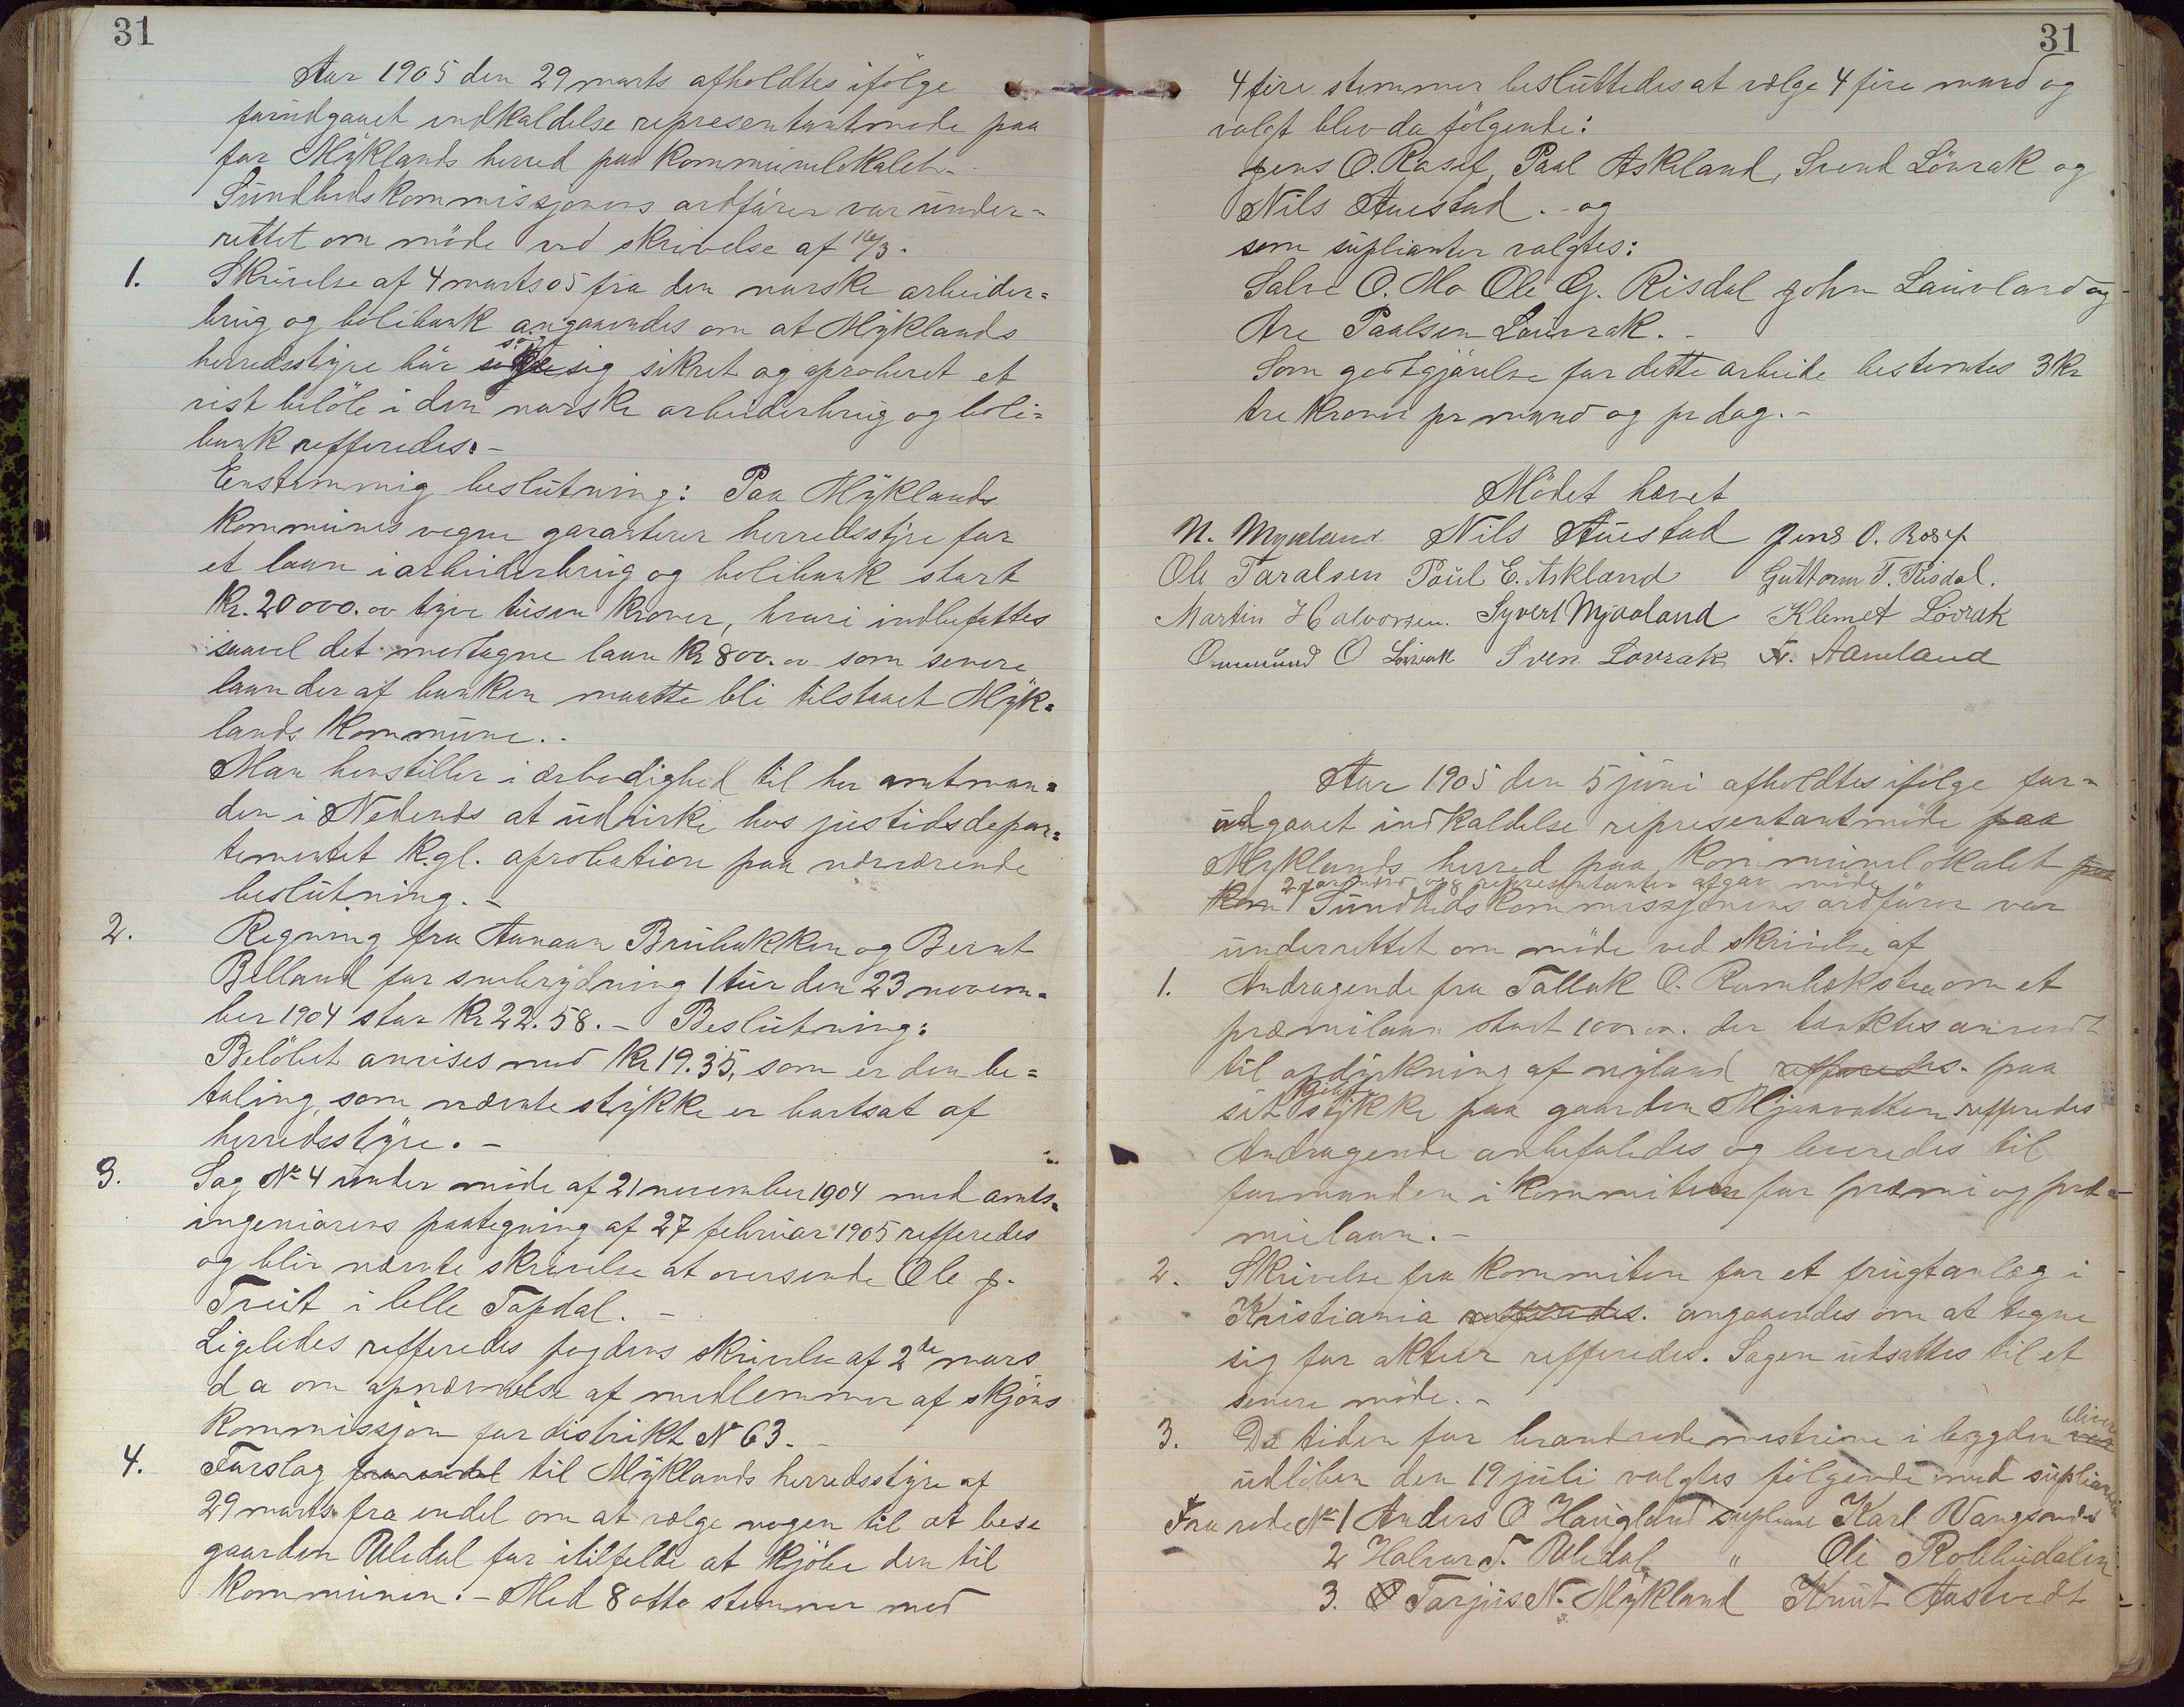 31
Aar 1905 den 29 marts afholdtes ifölge
forudgaaet indkaldelse representantmøde paa
for Mÿklands herred paa kommunelokalet.-
Sundhedskommissjonens ordförer var under=
rettet om möde ved skrivelse af 16/3.
1. Skrivelse af 4 marts 05 fra den norske arbeider=
brug og bolibank angaaendes om at Mÿklands
herredsstÿre bör sig sikret og aproberet et
vist belöb i den norske arbeiderbrug og boli=
bank refferedes.-
Enstemmig beslutning: Paa Mÿklands
kommunes vegne garanterer herredsstÿre for
et laan i arbeiderbrug og bolibank stort
Kr. 20000.00 tÿve tusen kroner, hvori indbefattes
saavel det modtagne laan Kr 800.00 som senere
laan der af banken maatte bli tilstaaet Mÿk=
lands kommune..
Man henstiller i ærbødighed til her amtman=
den i Nedenæs at udvirke hos justidsdepar=
tementet Kgl. aprobation paa nærværende
beslutning.-
2. Regning fra Aanaan Brubakken og Bernt
Belland for snebrÿdning 1 tur den 23 novem=
ber 1904 stor Kr 22.58.- Beslutning:
Belöbet anvises med Kr 19.35, som er den be=
taling, som nævnte stÿkke er bortsat af
herredsstÿre.-
3. Sag No 4 under möde af 21 november 1904 med amts=
ingeniörens paategning af 27 februar 1905 refferedes
og blir nævnte skrivelse at oversende Ole J.
Treit i lille Topdal.-
Ligeledes refferedes fogdens skrivelse af 2de mars
d a om opnævnelse af medlemmer af skjöns
kommissjon for distrikt No 63.-
4. Forslag fra endel til Mÿklands herredsstÿre af
29 marts fra endel om at vælge nogen til at bese
gaarden Uledal for itilfelde at kjöbe den til
kommunen.- Med 8 otte stemmer mod
31
4 fire stemmer besluttedes at vælge 4 fire mand og
valgt blev da fölgende:
Jens O. Rosef, Paal Askeland, Svend Lövrak og
Nils Auestad.- og
som suplianter valgtes:
Salve O. Mo Ole G. Risdal John Lauvland og
Are Paalsen Lauvrak.-
Som godtgjörelse for dette arbeide bestemtes 3 kr
tre kroner pr mand og pr dag.-
Mödet hævet
N. Mykland Nils Auestad Jens O. Rosef
Ole Taralsen Paul E. Askland Guttorm T. Risdal.
Martin Halvorsen. Syvert Mjaaland Klemet Lövrak
Ommund O Lövrak Sven Lovrak Tr. Aamland
Aar 1905 den 5 juni afholdtes ifölge for=
udgaaet indkaldelse representantmöde paa
Myklands herred paa kommunelokalet paa
og 8 representanter afgav möde
kom Sundhedskommissjonens ordförer var
underrettet om möde ved skrivelse af
1. Andragende fra Tallak O. Rambækstra om et
præmilaan stort 100.00. der tænktes anvendt
til opdÿrkning af nÿland refferedes. paa
sit kjöbt stÿkke paa gaarden Mjaavatten refferedes
Andragende anbefaledes og leveredes til
formanden i kommiteen for præmi og præ=
mielaan.-
2. Skrivelse fra kommiteen for et frugtanlæg i
Kristiania refferedes. angaaendes om at tegne
sig for aktier refferedes. Sagen udsattes til et
senere möde.-
3. Da tiden for brandrodemestrene i bygden var bliver
udlöben den 19 juli valgtes fölgende med suplianter
For rode No 1 Anders O Haugland supliant Karl Vangsnes
2 Halvor T. Uledal " Ole Robbudalen
3. Tarjus N. Mÿkland Knut Aastvedt